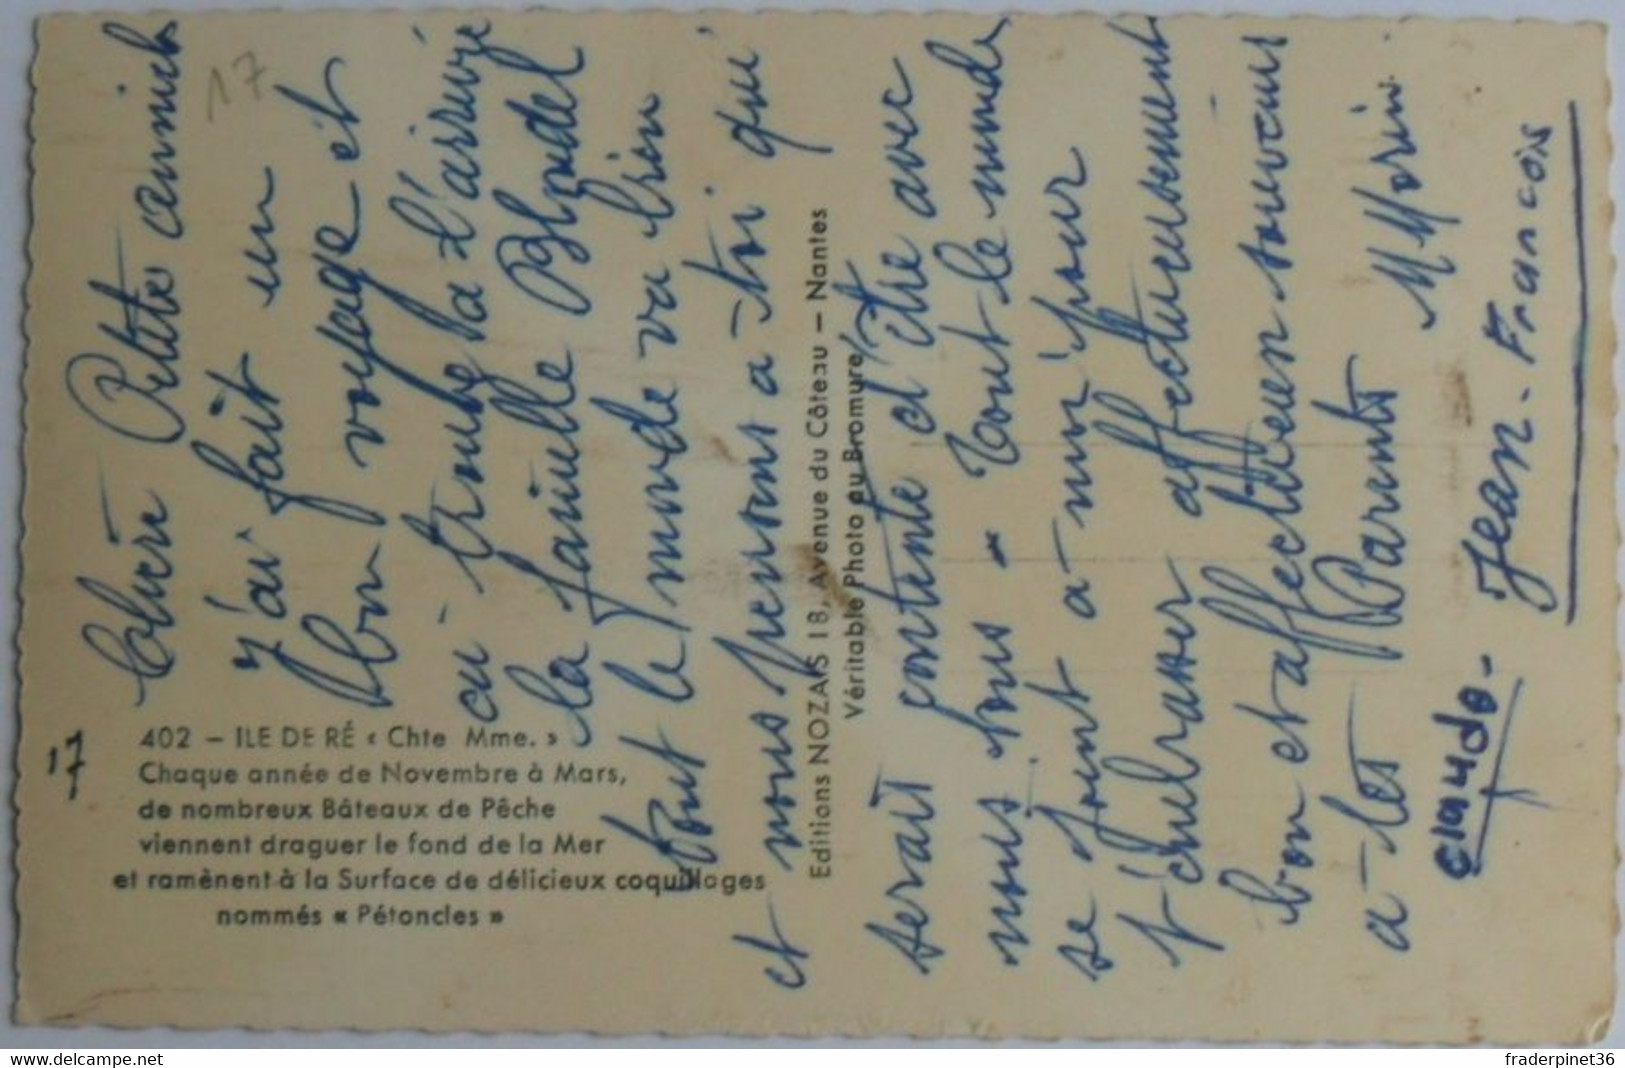 17
17
402 – ILE DE RÉ « Chte Mme. »
Chaque année de Novembre à Mars,
de nombreux Bâteaux de Pêche
viennent draguer le fond de la Mer
et ramènent à la Surface de délicieux coquillages
nommés « Pétoncles »
Editions NOZAIS 18, Avenue du Côteau – Nantes
Véritable Photo au Bromure
Petite amich
j'ai fait un
bon voyage et
ai trouve a l'arrivée
la famille Blondel
tout le monde va bien
et nous pensons a toi qui
serait contente d'être avec
nous tous - tout le monde
se joint a moi pour
t'embrasser affectueusement
bon et affectueux souvenirs
a tes Parents M Morin.
claude - Jean-Francois
www.delcampe.net
fraderpinet36